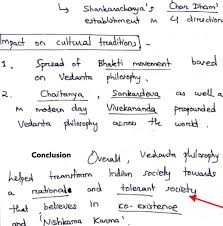 ↳ Shankaracharya's Char Dham'
establishment in 4 direction
Impact on cultural traditions.
1. Spread of Bhakti movement based
on Vedanta philosophy.
2. Chaitanya, Sankardeva, as well as
in modern day Vivekananda propounded
Vedanta philosophy across the world.
Conclusion Overall, Vedanta Philosophy
helped transform Indian society towards
a rational and tolerant society
that believes in co-existence
and 'Nishkama Karma'.